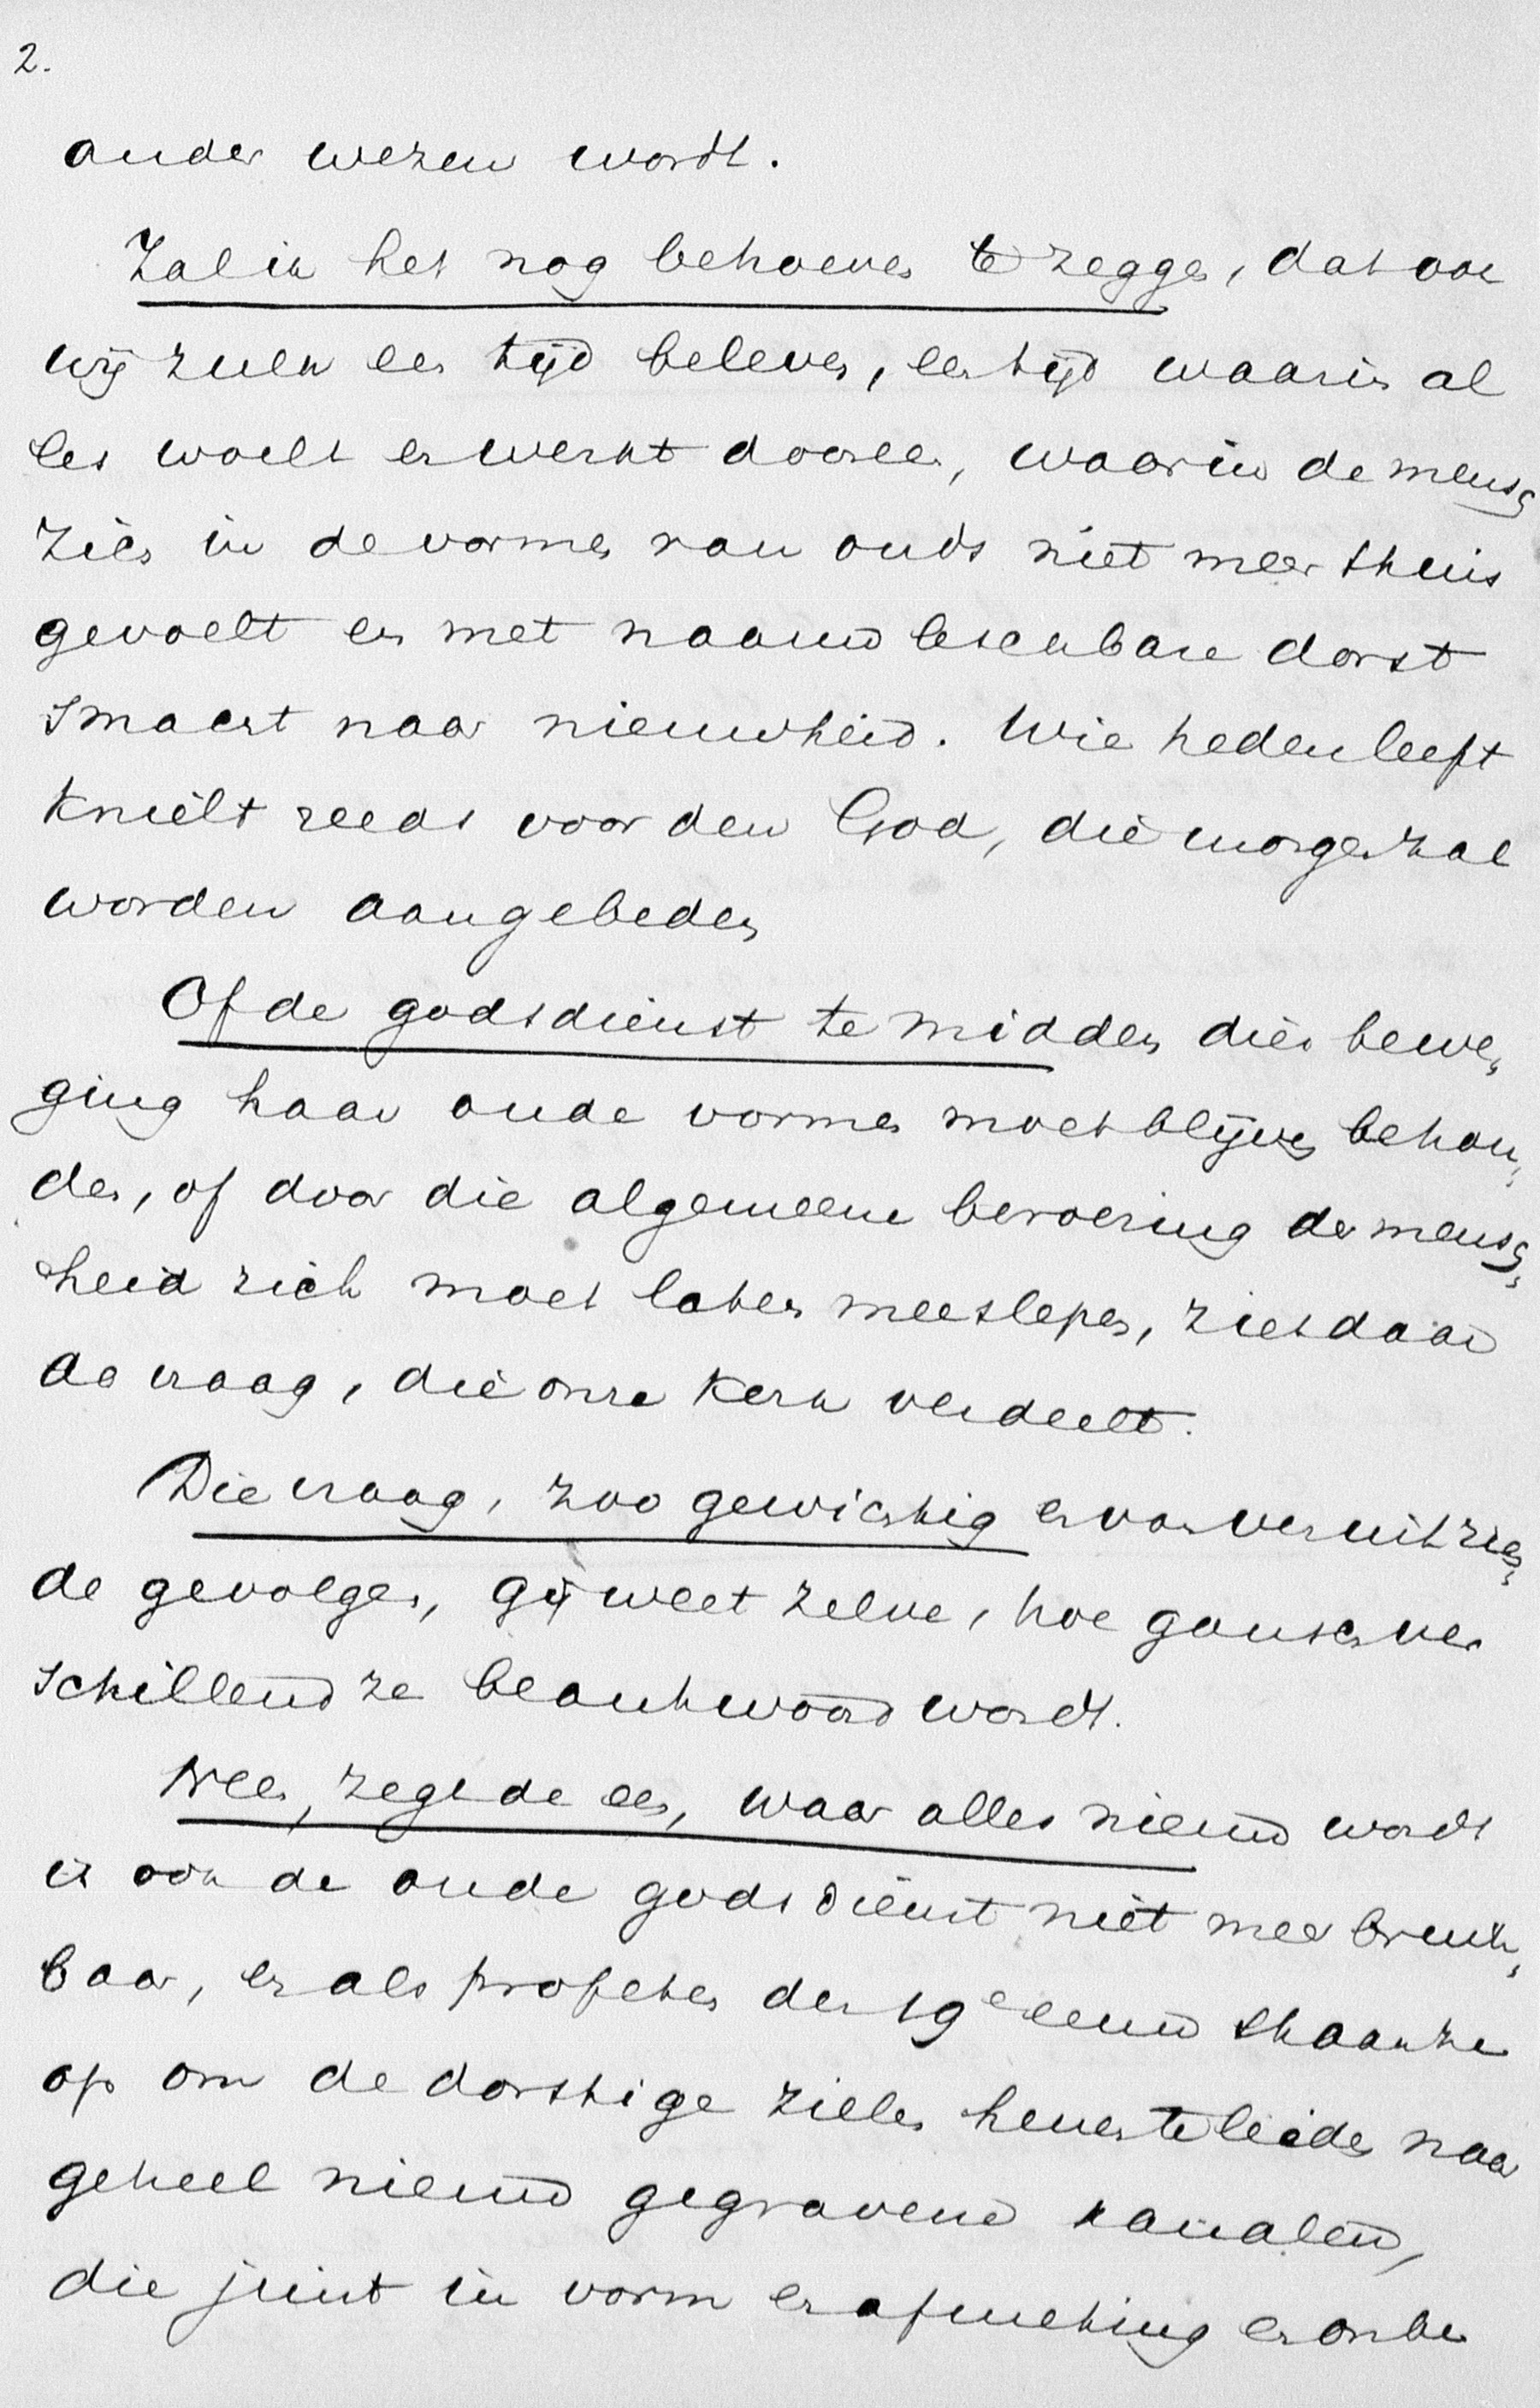 2.
ander wezen wordt.
Zal ik het nog behoeven te zeggen, dat ook
wij zulk een tijd beleven, een tijd waarin al
les woelt en werkt dooreen, waarin de mensch
zich in de vormen van ouds niet meer thuis
gevoelt en met naauw leschbare dorst
smacht naar nieuwheid. Wie heden leeft
knielt reeds voor den God, die morgen zal
worden aangebeden
Of de godsdienst te midden dier bewe„
ging haar oude vormen moet blijven behou„
den, of door die algemeene beroering der mensch„
heid zich moet laten meeslepen, ziet daar
de vraag, die onze kerk verdeelt.
Die vraag, zoo gewichtig en van ver uitzien„
de gevolgen, gij weet zelve, hoe gansch ver
schillend ze beantwoord wordt.
Neen, zegt de een, waar alles nieuw wordt
is ook de oude godsdienst niet meer bruik„
baar, en als profeten der 19e eeuw staan ze
op om de dorstige zielen henen te leiden naar
geheel nieuw gegravene kanalen,
die juist in vorm en afmeting en onbe